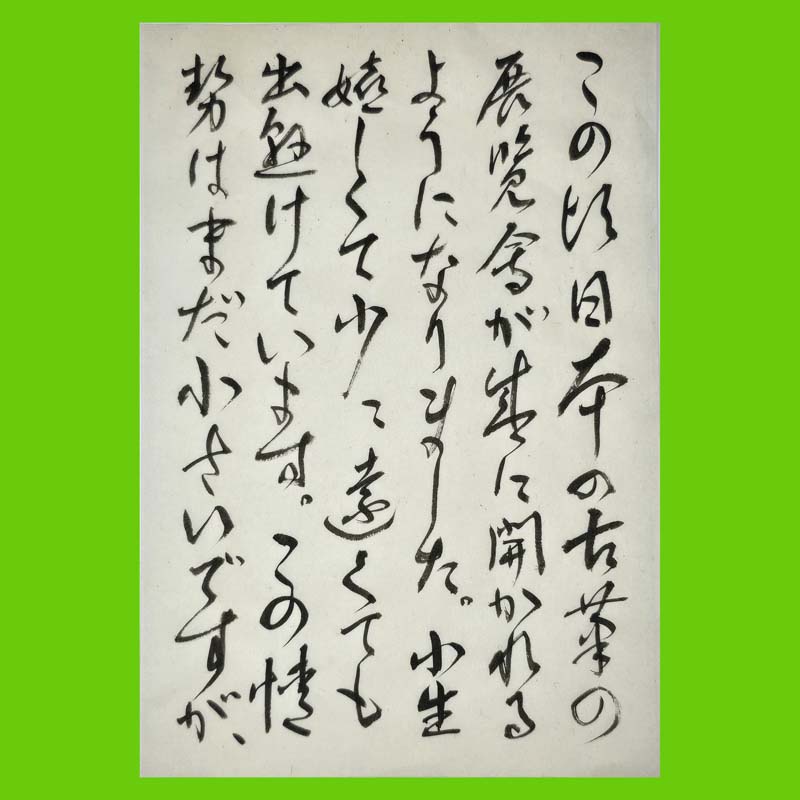 この頃日本の古菊の
展覧会が盛に開かれる
ようになりました。小生
嬉しくて少々遠くても
出逈けています。この情
勢はまだ小さいですが、